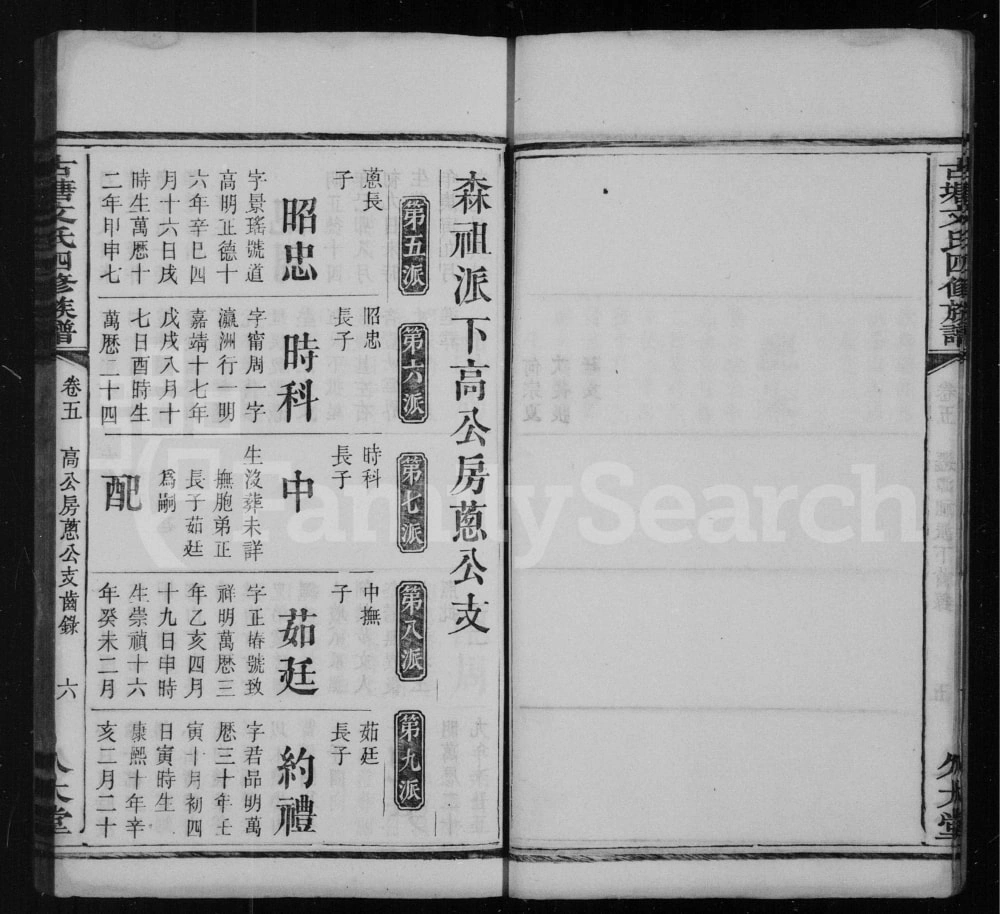 古塘文氏四修族譜
卷五
森祖派下高公房蒽公支
第五派
第六派
第七派
第八派
第九派
蒽長
子
昭忠
字景瑤號道
高明正德十
六年辛巳四
月十六日戌
時生萬曆十
二年甲申七
昭忠
長子
時科
字甯周一字
瀛洲行一明
嘉靖十七年
戊戌八月十
七日酉時生
萬曆二十四
時科
長子
中
生沒葬未詳
撫胞弟正
長子茹廷
爲嗣
配
中撫
子
茹廷
字正㫪號致
祥明萬曆三
年乙亥四月
十九日申時
生崇禎十六
年癸未二月
茹廷
長子
約禮
字君品明萬
曆三十年壬
寅十月初四
日寅時生
康熙十年辛
亥三月二十
古塘文氏四修族譜
卷五
高公房蒽公支齒錄
六
FamilySearch